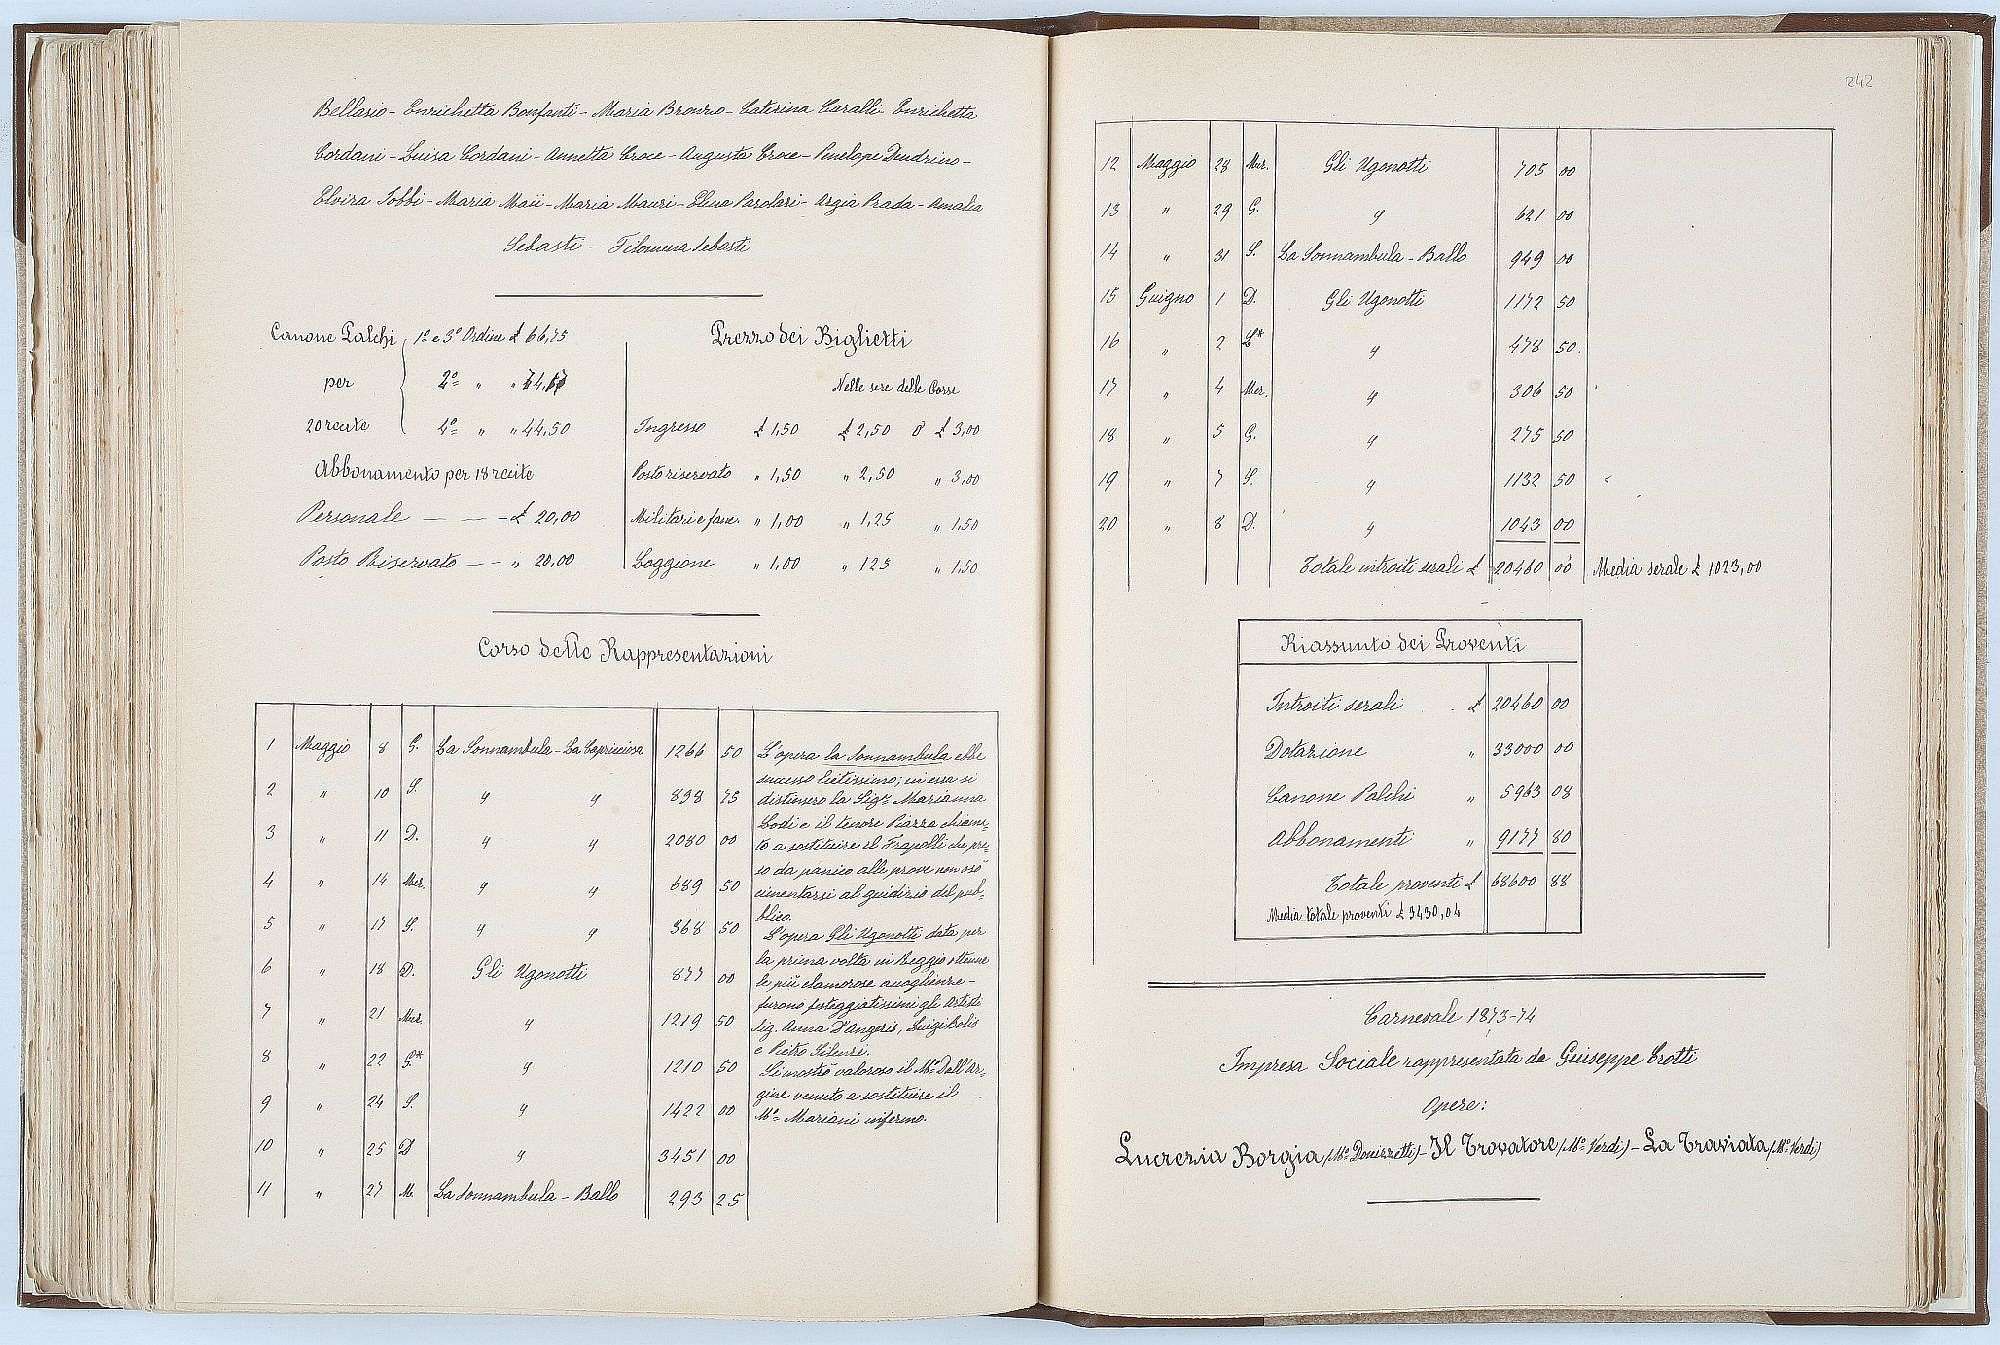 Bellasio - Enrichetta Bonfanti - Maria Bronzo - Caterina Curalli Enrichetta
Cordani - Luisa Cordani - Annetta Croce - Augusta Croce - Penelope Dendrino -
Elvira Fobbi - Maria Maii - Maria Mauri - Elena Parolari - Argia Prada - Amalia
Sebasti Filomena Sebasti
Canone Palchi 1º e 3º Ordine £ 66,75
per 2º " " 74,17
20 recite 4º " " 44,50
Abbonamento per 18 recite
Personale — — - £ 20,00
Posto Riservato — - " 20,00
Prezzo dei Biglietti
Nelle sere delle Corse
Ingresso £ 1,50 £ 2,50 o £ 3,00
Posto riservato " 1,50 " 2,50 " 3,00
Militari e fanc. " 1,00 " 1,25 " 1,50
Loggione " 1,00 " 125 " 1,50
Corso delle Rappresentazioni
1 Maggio 8 G. La Sonnambula - La Capricciosa 1266 50
2 " 10 S. " " 838 75
3 " 11 D. " " 2080 00
4 " 14 Mer. " " 689 50
5 " 17 S. " " 368 50
6 " 18 D. Gli Ugonotti 877 00
7 " 21 Mer. " 1219 50
8 " 22 G.* " 1210 50
9 " 24 S. " 1422 00
10 " 25 D " 3451 00
11 " 27 M. La Sonnambula - Ballo 293 25
L'opera la Sonnambula ebbe
successo lietissimo; in essa si
distinsero la Sigª Marianna
Lodi e il tenore Piazza chiama-
to a sostituire il Frapolli che pre-
so da panico alle prove non osò
cimentarsi al giudizio del pub-
blico.
L'opera Gli Ugonotti data per
la prima volta in Reggio ottenne
le più clamorose accoglienze -
furono festeggiatissimi gli Artisti
Sig. Anna D'Angeris, Luigi Bolis
e Pietro Silenzi.
Si mostrò valoroso il Mº Dall'Ar-
gine venuto a sostituire il
Mº Mariani infermo.
242
12 Maggio 28 Mer. Gli Ugonotti 705 00
13 " 29 G. " 621 00
14 " 31 S. La Sonnambula - Ballo 949 00
15 Guigno 1 D. Gli Ugonotti 1172 50
16 " 2 L* " 478 50
17 " 4 Mer. " 306 50
18 " 5 G. " 275 50
19 " 7 S. " 1132 50
20 " 8 D. " 1043 00
Totale introiti serali £ 20460 00 Media serale £ 1023,00
Riassunto dei Proventi
Introiti serali £ 20460 00
Dotazione " 33000 00
Canone Palchi " 5963 08
Abbonamenti " 9177 80
Totale proventi £ 68600 88
Media totale proventi £ 3430,04
Carnevale 1873-74
Impresa Sociale rappresentata da Giuseppe Trotti
Opere:
Lucrezia Borgia (Mº Donizzetti) - Il Trovatore (Mº Verdi) - La Traviata (Mº Verdi)